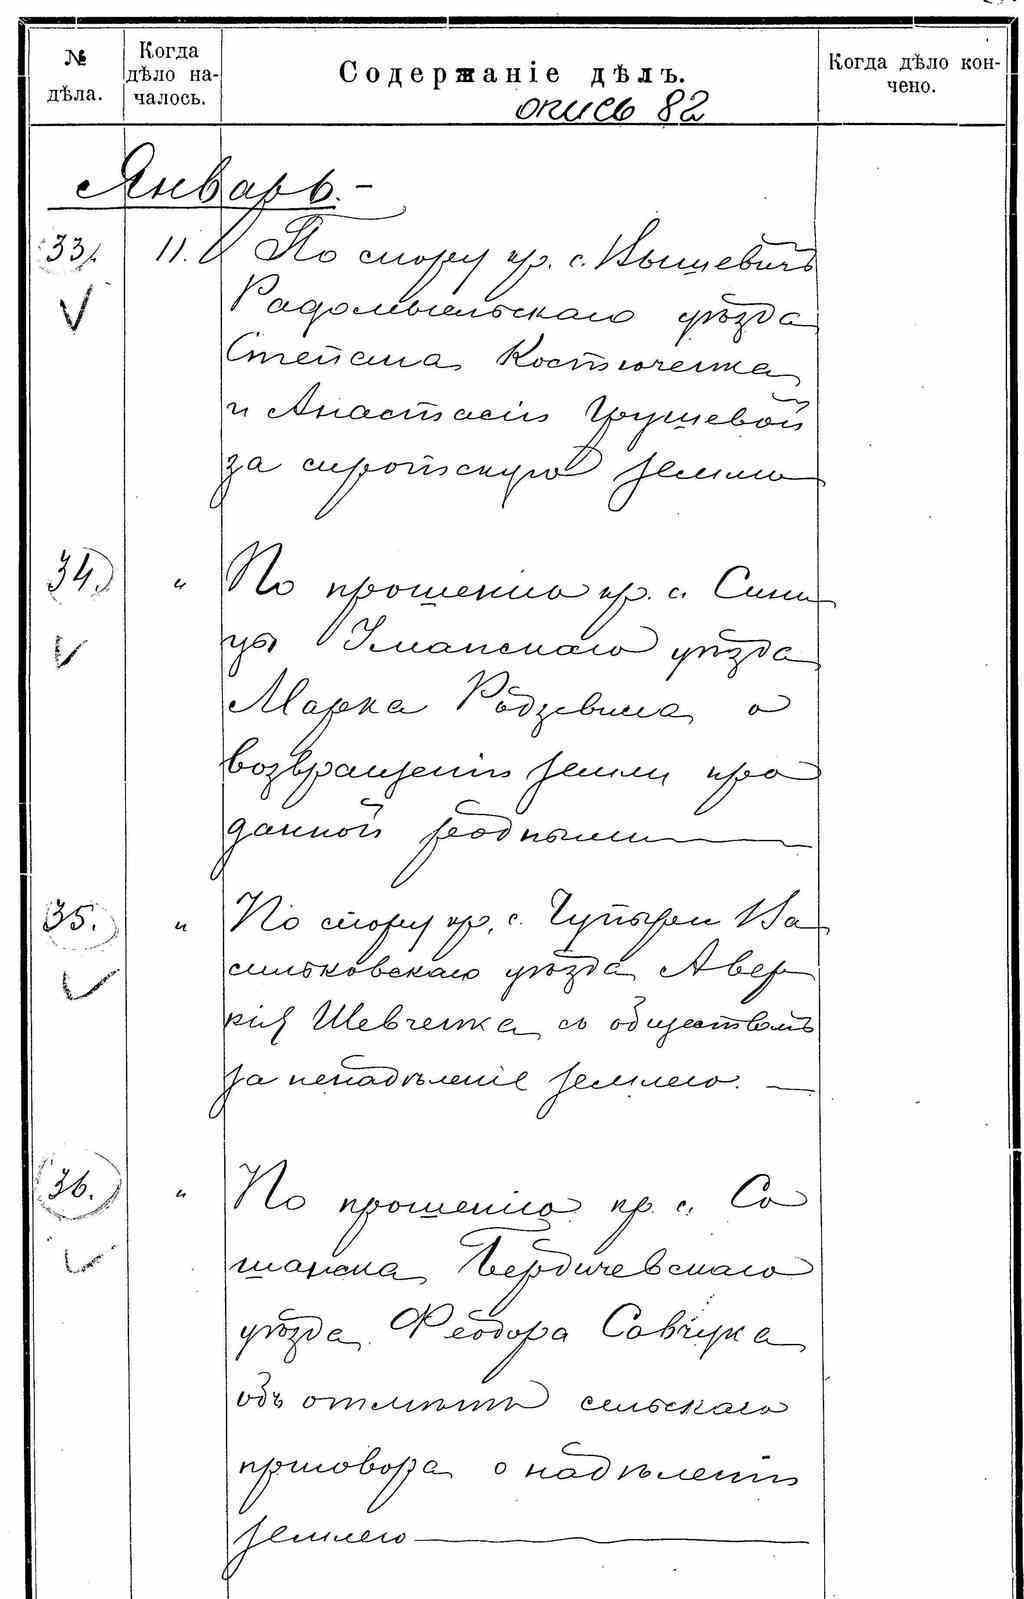 № дѣла.
Когда дѣло на-
чалось.
Содержаніе дѣлъ.
Когда дѣло кон-
чено.
опись 82
Январь.-
33. 11. По спору кр. с. Вышевичъ
Радомысльскаго уѣзда
Степана Костюченка
и Анастасіи Грушевой
за сиротскую землю
34. " По прошенію кр. с. Сини
цы Уманскаго уѣзда
Марка Родзевила о
возвращеніи земли про
данной родными
35. " По спору кр. с. Чупыри Ва
сильковскаго уѣзда Авер
кія Шевченка съ обществомъ
за ненадѣленіе землею. —
36. " По прошенію кр. с. Со
шанска Бердичевскаго
уѣзда Феодора Савчука
объ отмѣнѣ сельскаго
приговора о надѣленіи
землею